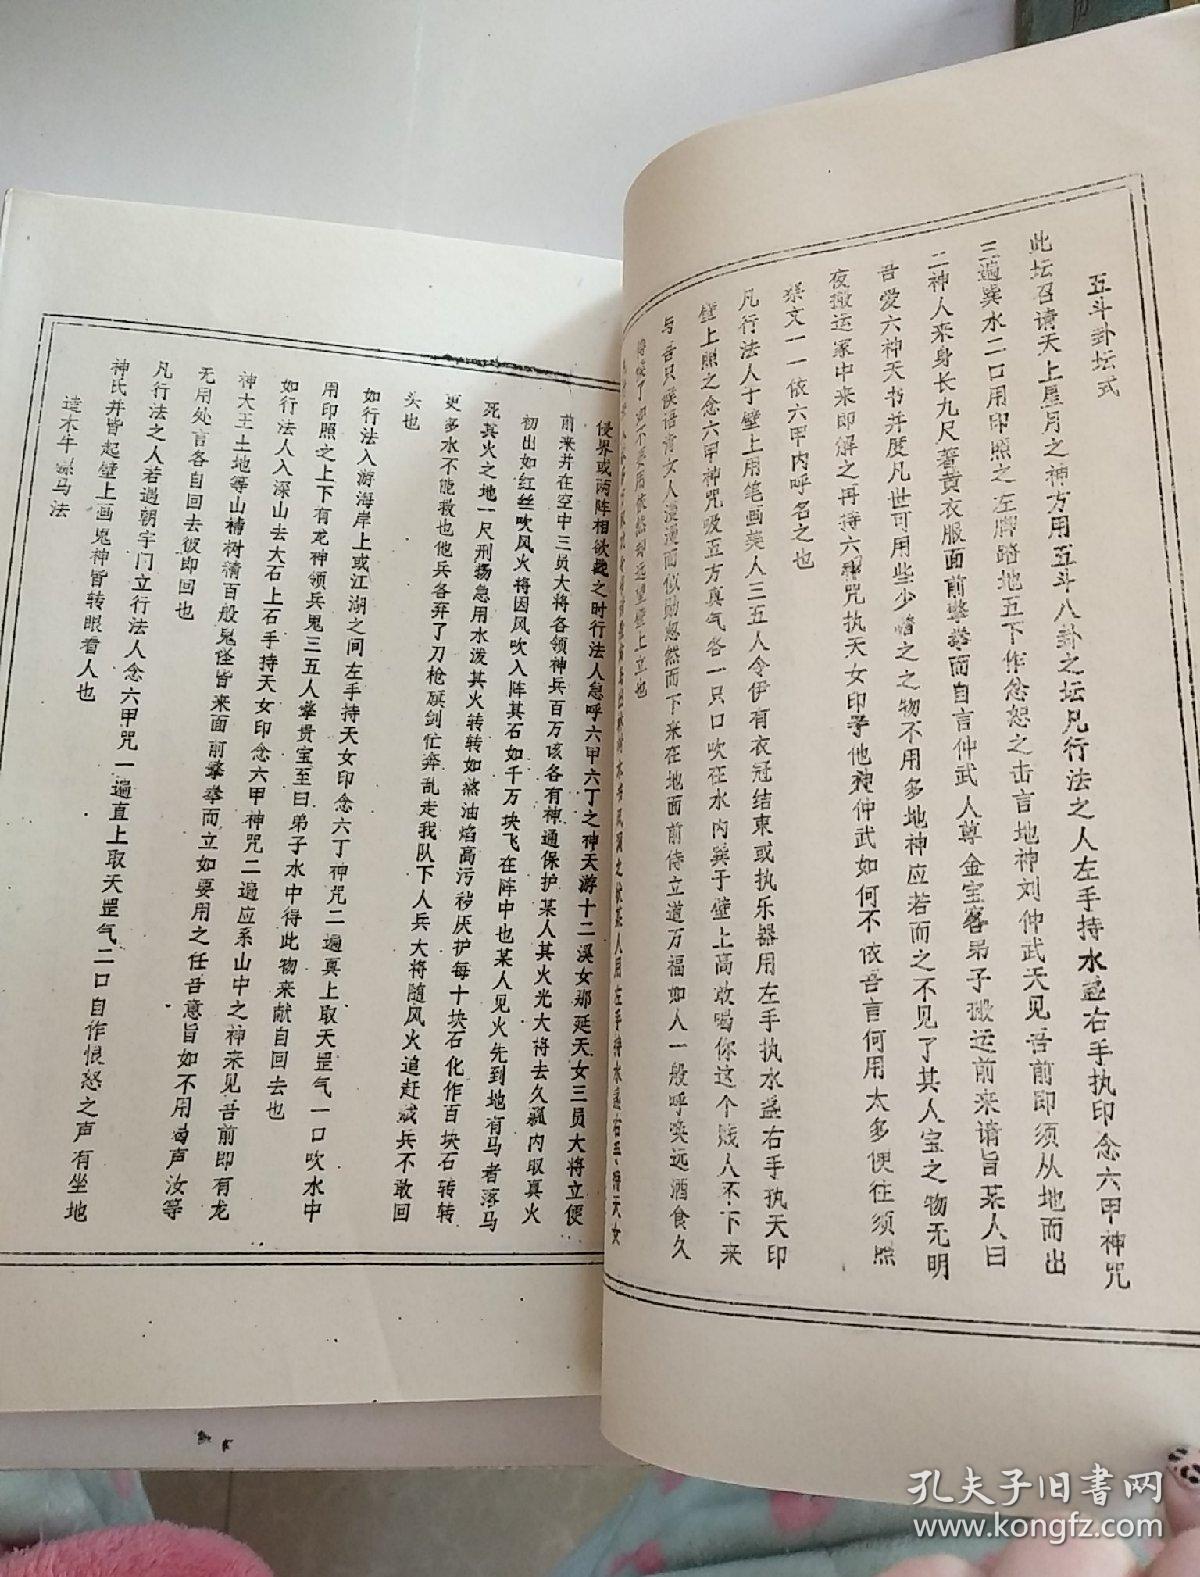 五斗卦坛式
此坛召请天上星月之神方用五斗八卦之坛凡行法之人左手持水盏右手执印念六甲神咒
三遍巽水二口用印照之左脚踏地五下作忿恕之击言地神刘仲武天见吾前即须从地而出
二神人来身长九尺著黄衣服面前擎拳而自言仲武人尊金宝客弟子搬运前来请旨某人曰
吾爱六神天书并度凡世可用些少惜之之物不用多地神应若而之不见了其人宝之物无明
夜搬运家中来即解之再持六神咒执天女印予他神仲武如何不依吾言何用太多便往须照
祭文一一依六甲内呼名之也
凡行法人于壁上用笔画美人三五人令伊有衣冠结束或执乐器用左手执水盏右手执天印
壁上照之念六甲神咒吸五方真气各一只口吹在水内巽于壁上高敢喝你这个贱人不下来
与吾只候语肯女人漫漫面似励怒然而下来在地面前侍立道万福如人一般呼唤远酒食久
侵界或两阵相欲趋之时行法人怠呼六甲六丁之神天游十二溪女那延天女三员大将立便
前来并在空中三员大将各领神兵百万该各有神通保护某人其火光大将去久瓢内取真火
初出如红丝吹风火将因风吹入阵其石如千万块飞在阵中也某人见火先到地有马者落马
死其火之地一尺刑扬急用水泼其火转转如蒸油焰高污秽厌护每十块石化作百块石转转
更多水不能救也他兵各弃了刀枪旗剑忙奔乱走我队下人兵大将随风火追赶贼兵不敢回
头也
如行法入游海岸上或江湖之间左手持天女印念六丁神咒二遍真上取天罡气一口吹水中
用印照之上下有龙神领兵鬼三五人擎贵宝至曰弟子水中得此物来献自回去也
如行法人入深山去大石上右手持天女印念六甲神咒二遍应系山中之神来见吾前即有龙
神大王土地等山精树精百般鬼怪皆来面前擎拳而立如要用之任吾意旨如不用曷声汝等
无用处言各自回去彼即回也
凡行法之人若遇朝宇门立行法人念六甲咒一遍直上取天罡气二口自作恨怒之声有坐地
神氏并皆起壁上画鬼神皆转眼看人也
造木牛骡马法
孔夫子旧书网
www.kongfz.com